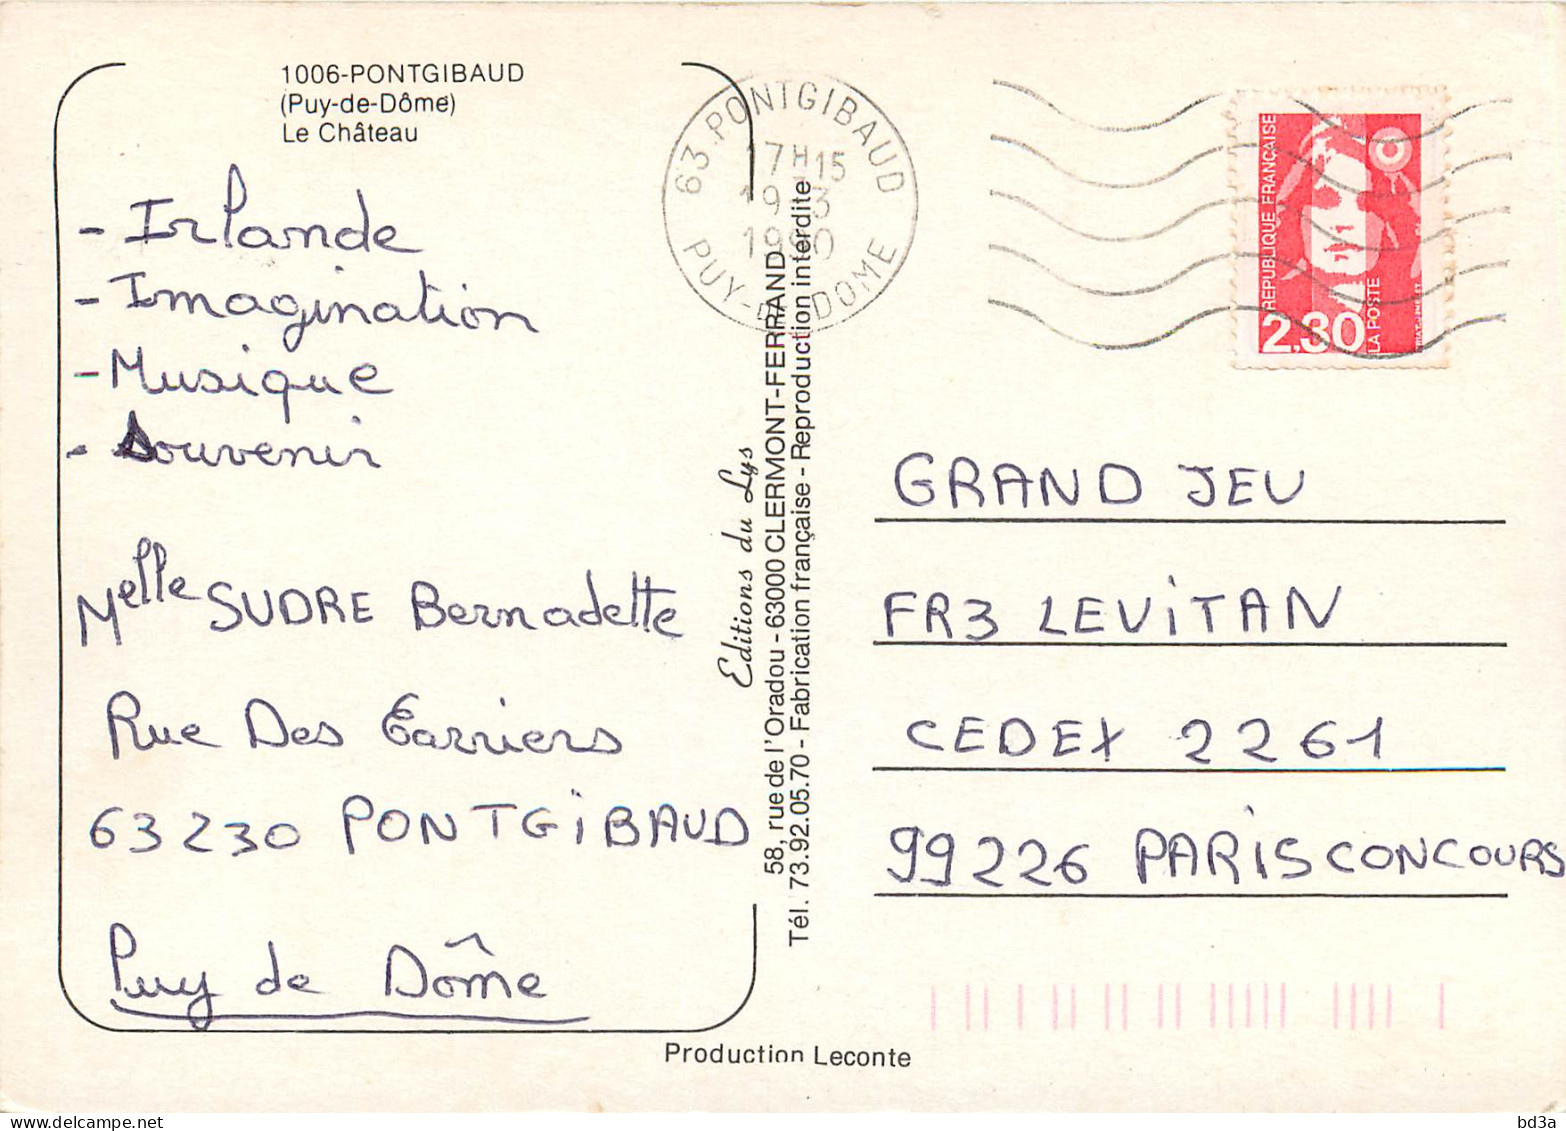 1006-PONTGIBAUD
(Puy-de-Dôme)
Le Château
- Irlande
- Imagination
- Musique
- Souvenir
Melle SUDRE Bernadette
Rue Des Farriers
63230 PONTGIBAUD
Puy de Dôme
Editions du Lys
58, rue de l'Oradou - 63000 CLERMONT-FERRAND
Tél. 73.92.05.70 - Fabrication française - Reproduction interdite
Production Leconte
63 PONTGIBAUD
17H15
19-3
1990
PUY-DE-DOME
REPUBLIQUE FRANÇAISE
2,30
LA POSTE
GRAND JEU
FR3 LEVITAN
CEDEX 2261
99226 PARIS CONCOURS
bd3a